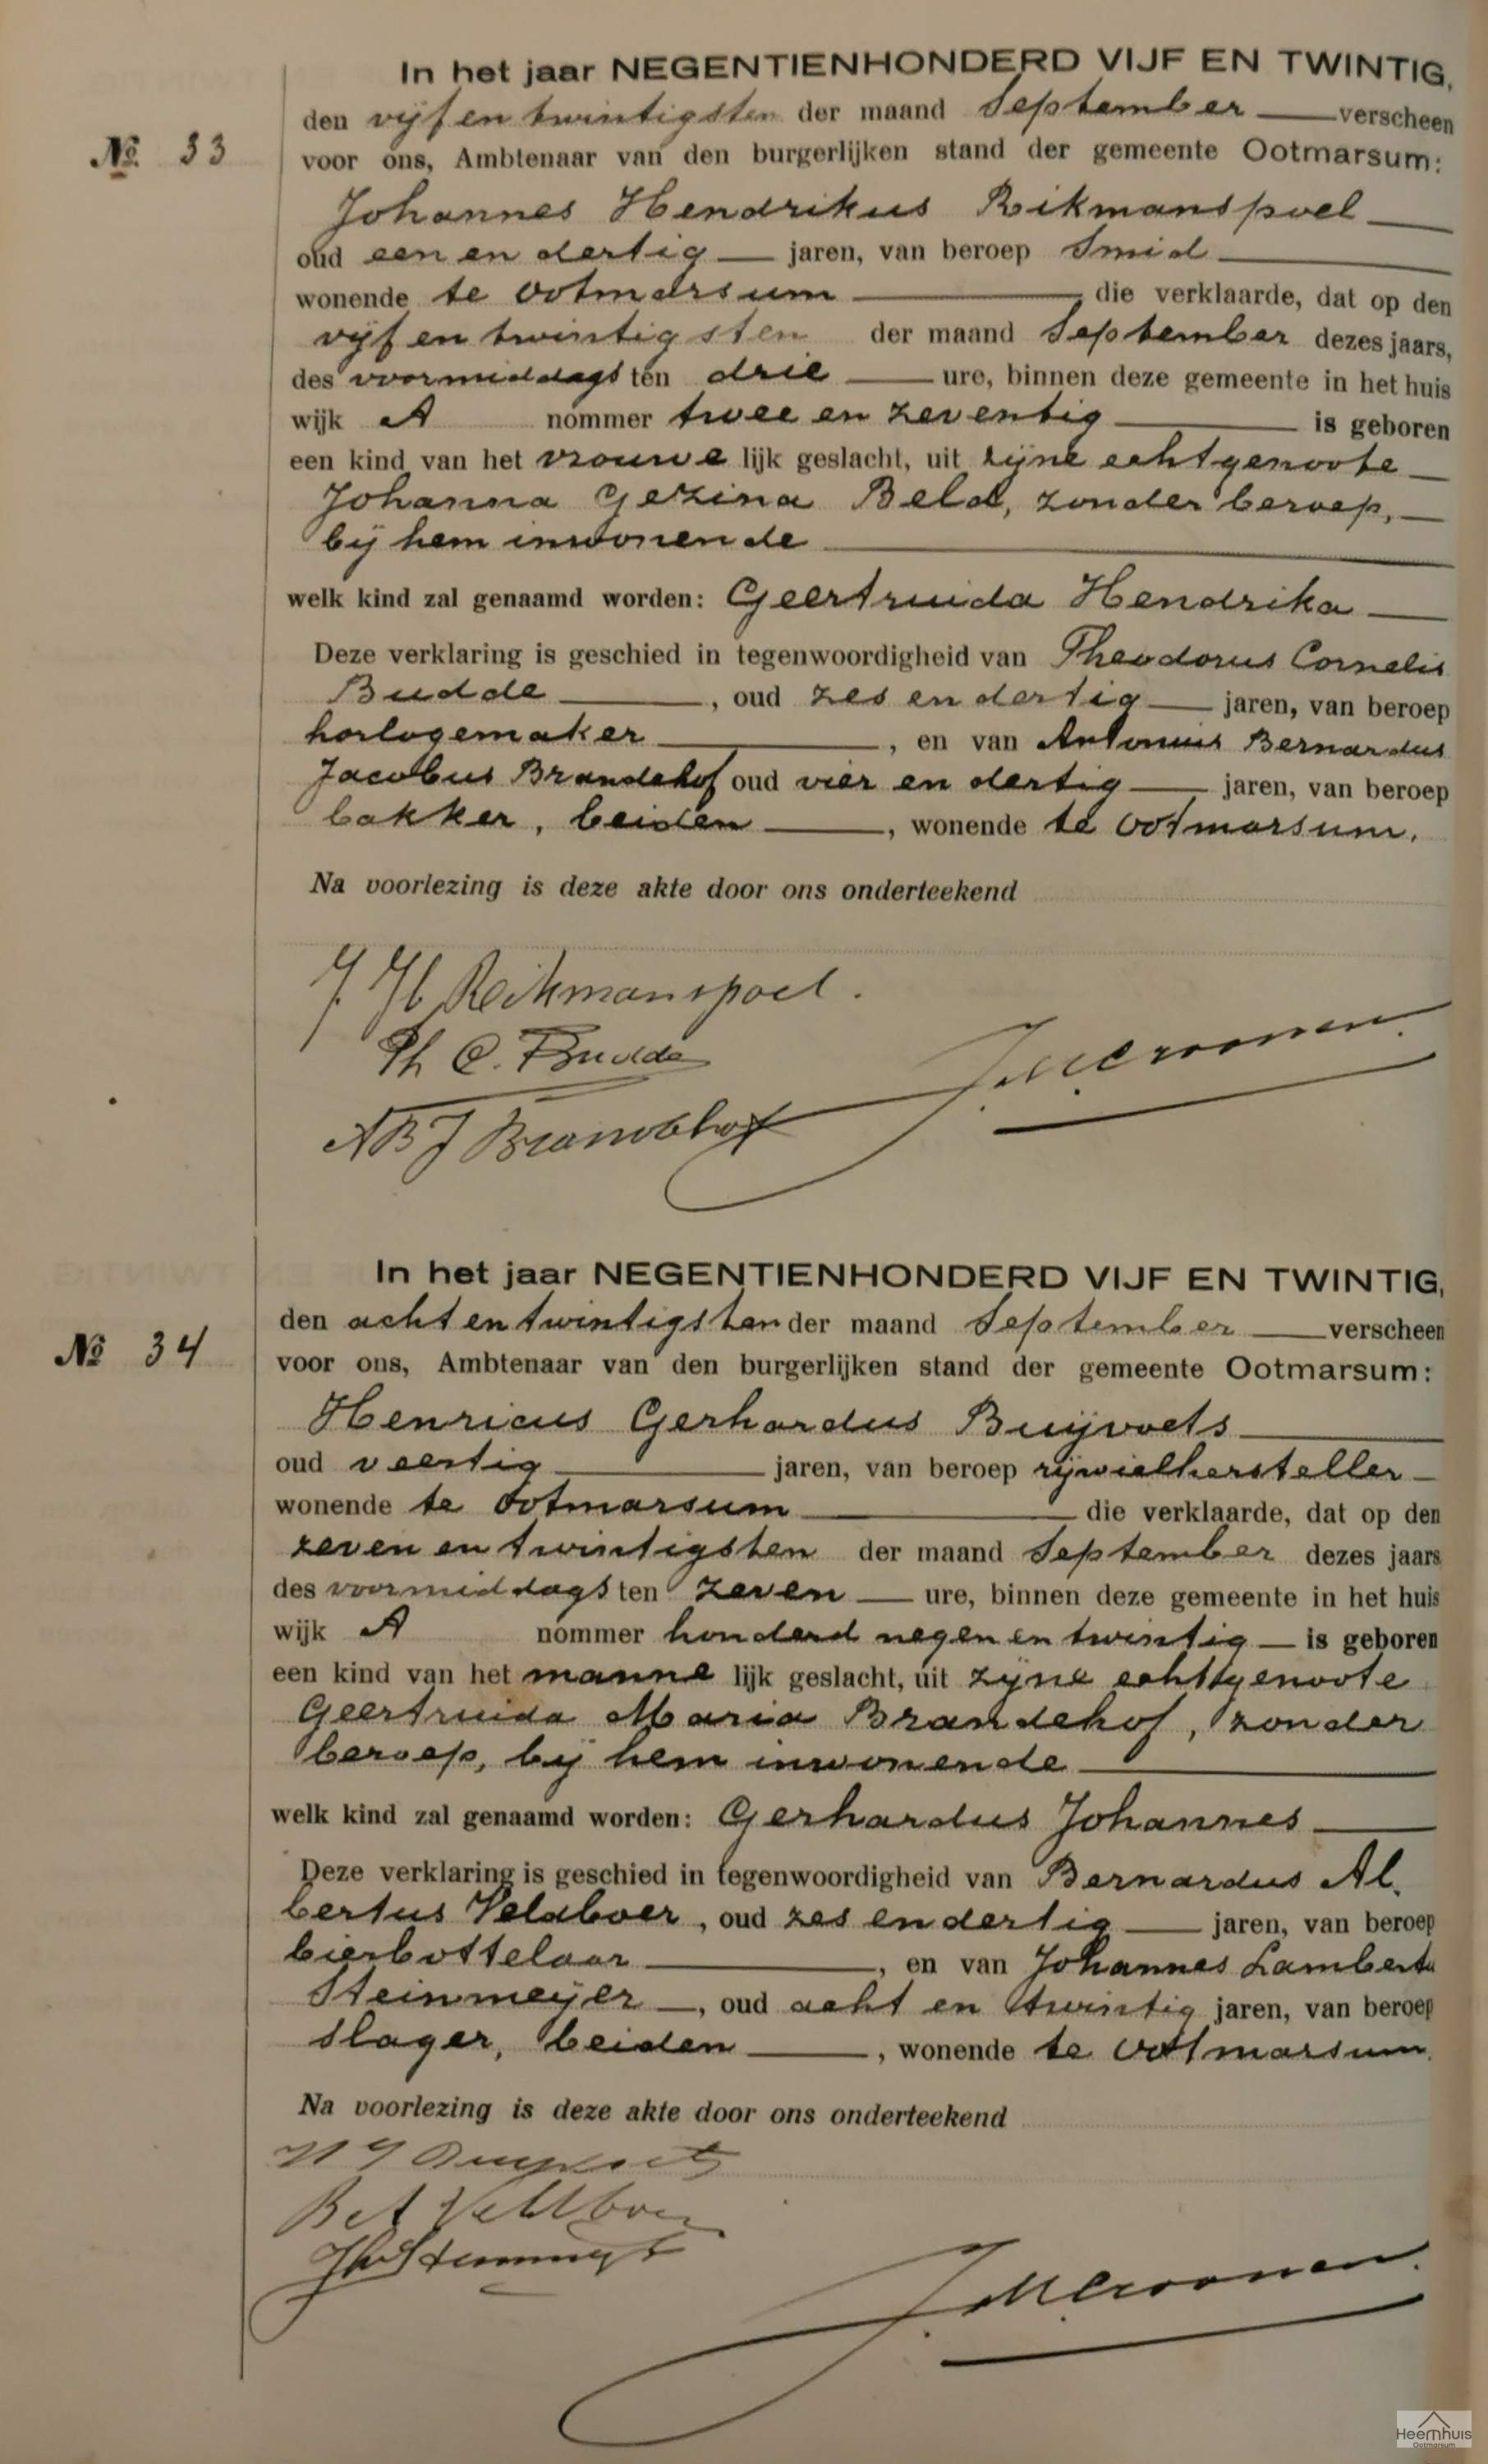 In het jaar NEGENTIENHONDERD VIJF EN TWINTIG,
den vijf en twintigsten der maand September verscheen
No. 33
voor ons, Ambtenaar van den burgerlijken stand der gemeente Ootmarsum:
Johannes Hendrikus Rikmanspoel
oud een en dertig jaren, van beroep Smid
wonende te Ootmarsum die verklaarde, dat op den
vijf en twintigsten der maand September dezes jaars,
des voormiddags ten drie ure, binnen deze gemeente in het huis
wijk A nommer twee en zeventig is geboren
een kind van het vrouwe lijk geslacht, uit zijne echtgenoote
Johanna Gezina Beld, zonder beroep,
bij hem inwonende
welk kind zal genaamd worden: Geertruida Hendrika
Deze verklaring is geschied in tegenwoordigheid van Theodorus Cornelis
Budde, oud zes en dertig jaren, van beroep
horlogemaker, en van Antonius Bernardus
Jacobus Brandehof oud vier en dertig jaren, van beroep
bakker, beiden, wonende te Ootmarsum.
Na voorlezing is deze akte door ons onderteekend
J. H. Rikmanspoel.
Th C. Budde
A B J Brandehof
In het jaar NEGENTIENHONDERD VIJF EN TWINTIG,
den acht en twintigsten der maand September verscheen
No 34
voor ons, Ambtenaar van den burgerlijken stand der gemeente Ootmarsum:
Henricus Gerhardus Buijvoets
oud veertig jaren, van beroep rijwielhersteller
wonende te Ootmarsum die verklaarde, dat op den
zeven en twintigsten der maand September dezes jaars
des voormiddags ten zeven ure, binnen deze gemeente in het huis
wijk A nommer honderd negen en twintig is geboren
een kind van het manne lijk geslacht, uit zijne echtgenoote
Geertruida Maria Brandehof, zonder
beroep, bij hem inwonende
welk kind zal genaamd worden: Gerhardus Johannes
Deze verklaring is geschied in tegenwoordigheid van Bernardus Al-
bertus Veldboer, oud zes en dertig jaren, van beroep
bierbottelaar, en van Johannes Lambertu
Steinmeijer, oud acht en twintig jaren, van beroep
slager, beiden, wonende te Ootmarsum.
Na voorlezing is deze akte door ons onderteekend
H G Buijvoets
B A Veldboer
Heemhuis
Ootmarsum